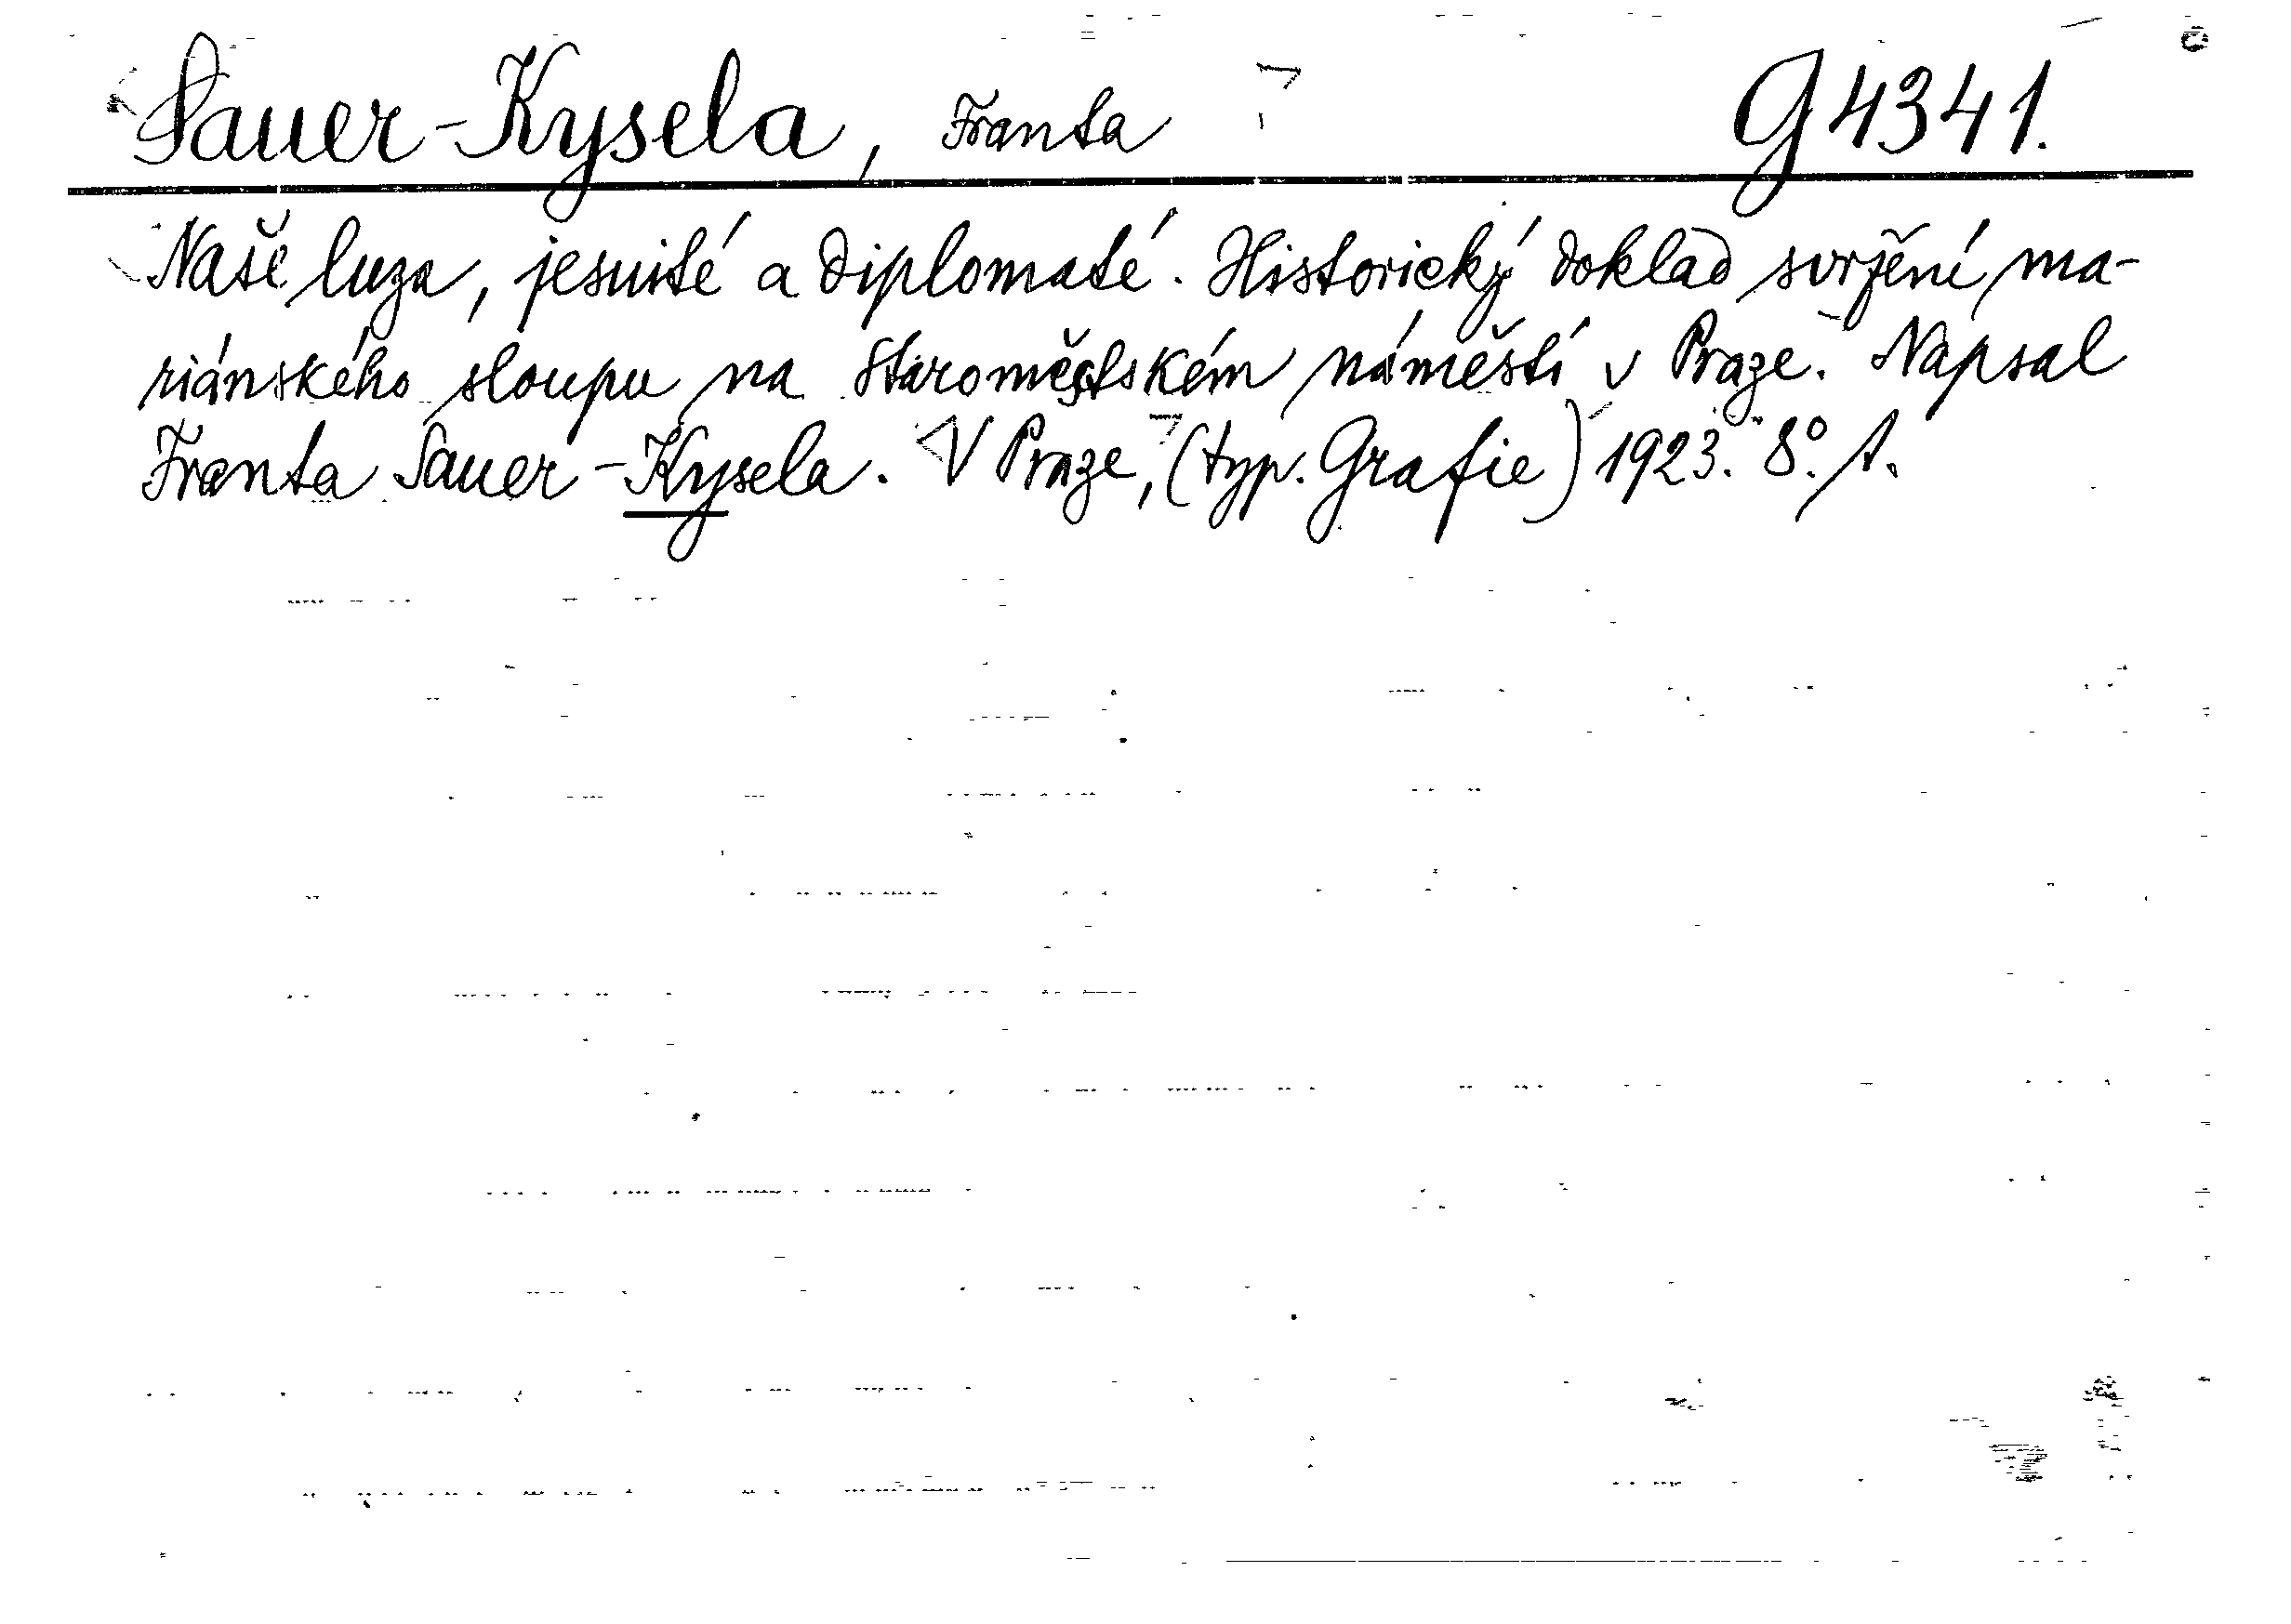 Sauer-Kysela, Franta G 4341.
Naše luza, jesuité a diplomaté. Historický doklad svržení ma-
riánského sloupu na Staroměstském náměstí v Praze. Napsal
Franta Sauer-Kysela. V Praze, (typ. Grafie) 1923. 8°. 1.